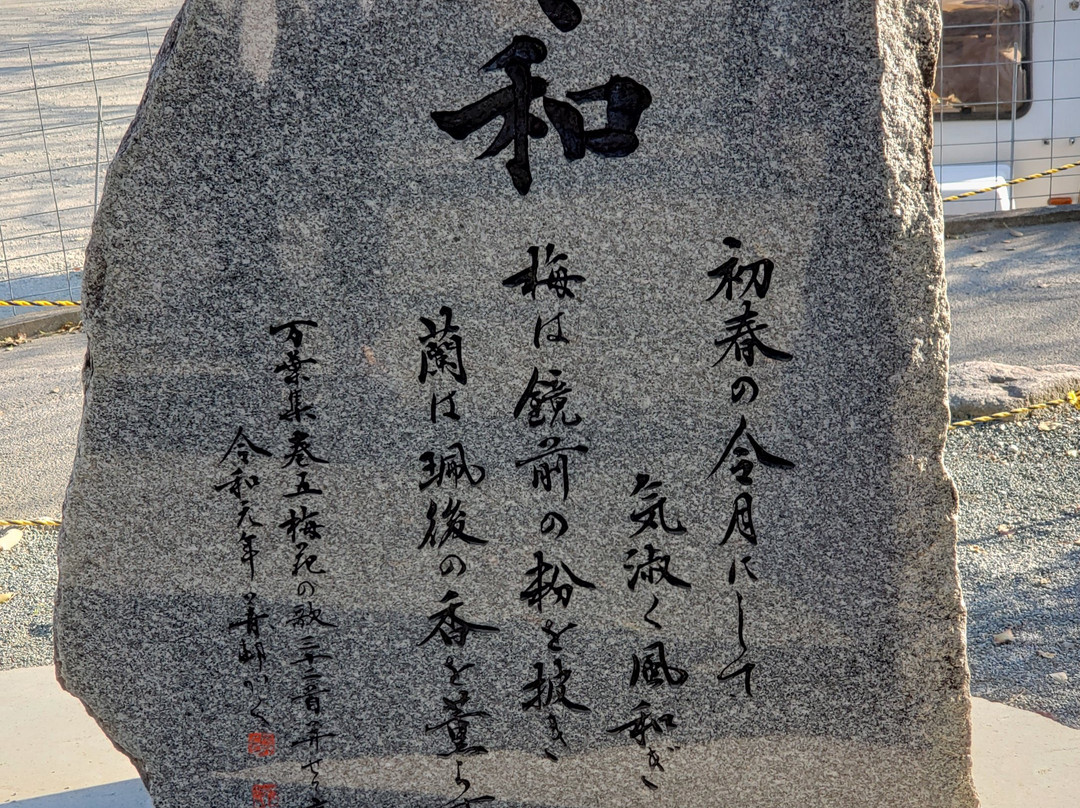 和
初春の令月にして
気淑く風和ぎ
梅は鏡前の粉を披き
蘭は珮後の香を薫らす
万葉集巻五梅花の歌三十二首并せて序
令和元年